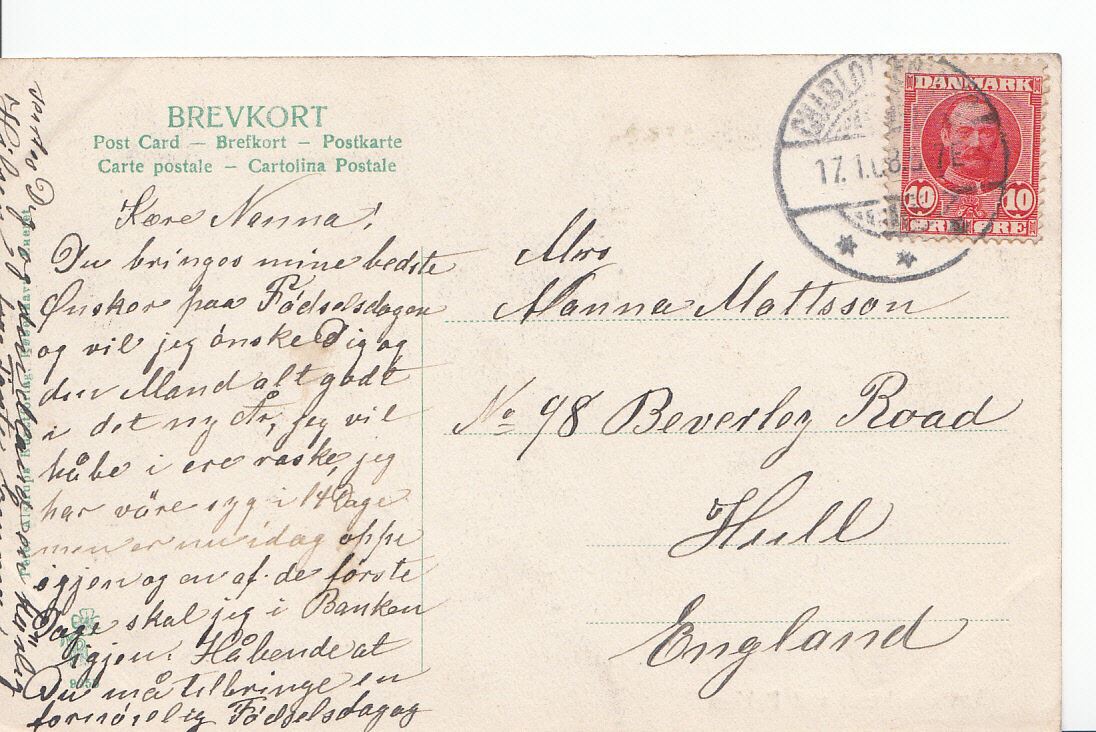 BREVKORT
Post Card — Brefkort — Postkarte
Carte postale — Cartolina Postale
Kære Nanna!
Du bringes mine bedste
Ønsker paa Fødselsdagen
og vil jeg ønske Dig og
din Mand alt godt
i det ny År, jeg vil
håbe i ere raske, jeg
har være syg i 14 Dage
men er nu idag oppe
igjen og en af de første
Dage skal jeg i Banken
igjen. Håbende at
Du må tilbringe en
fornøielig Fødselsdag og
Mrs
Nanna Mattsson
No 98 Beverley Road
Hull
England
DANMARK
10 10
ØRE ØRE
17.1.08